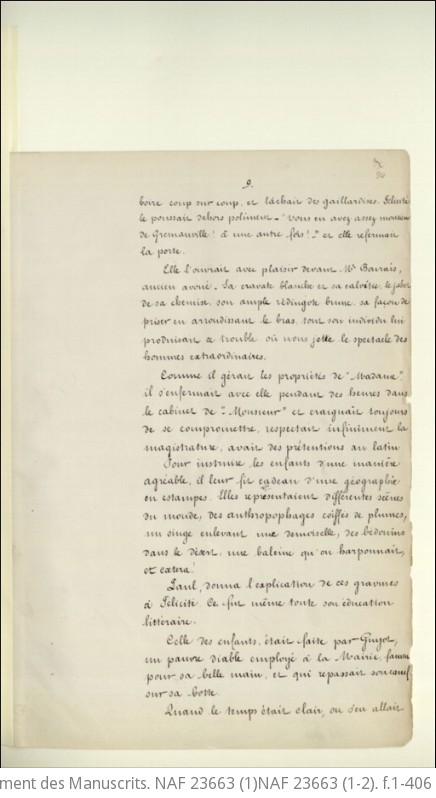 9.
boire coup sur coup, et lâchait des gaillardises. Félicité
le poussait dehors poliment - "Vous en avez assez monsieur
de Gremanville! à une autre fois!" et elle refermait
la porte.
Elle l'ouvrait avec plaisir devant Mr Bourais,
ancien avoué. Sa cravate blanche et sa calvitie, le jabot
de sa chemise, son ample redingote brune, sa façon de
priser en arrondissant le bras, tout son individu lui
produisait ce trouble où nous jette le spectacle des
hommes extraordinaires.
Comme il gérait les propriétés de "Madame",
il s'enfermait avec elle pendant des heures dans
le cabinet de "Monsieur" et craignait toujours
de se compromettre, respectait infiniment la
magistrature, avait des prétentions au latin
Pour instruire les enfants d'une manière
agréable, il leur fit cadeau d'une géographie
en estampes. Elles représentaient différentes scènes
du monde, des anthropophages coiffés de plumes,
un singe enlevant une demoiselle, des bédouins
dans le désert, une baleine qu'on harponnait,
et cætera!
Paul, donna l'explication de ces gravures
à Félicité. Ce fut même toute son éducation
littéraire.
Celle des enfants, était faite par Guyot,
un pauvre diable employé à la Mairie, fameux
pour sa belle main, et qui repassait son canif
sur sa botte.
Quand le temps était clair, on s'en allait
ment des Manuscrits. NAF 23663 (1)NAF 23663 (1-2). f.1-406